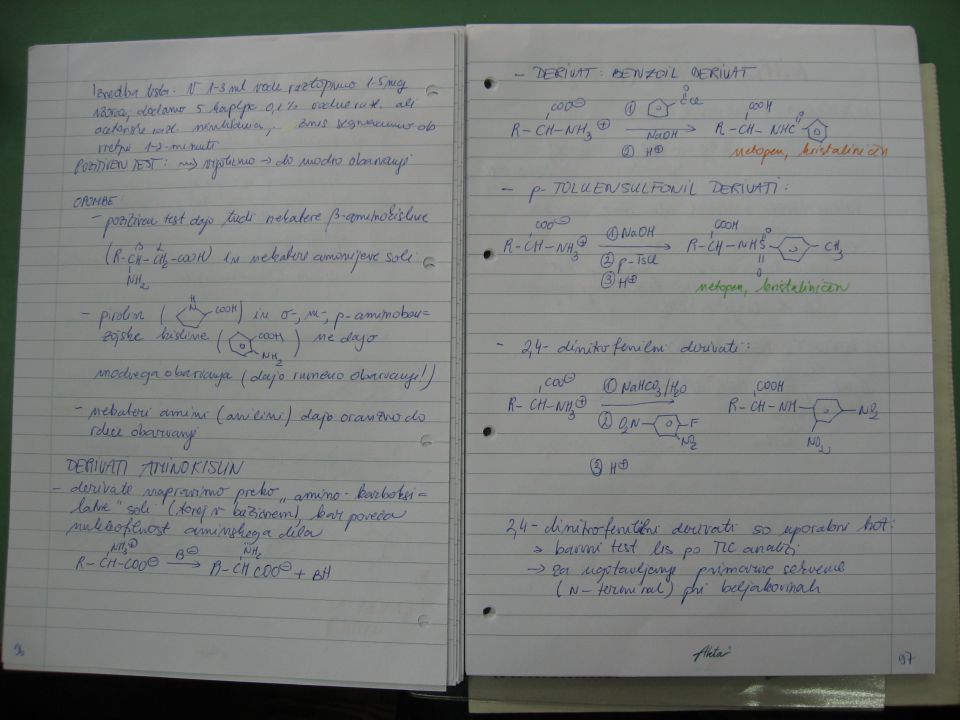 Izvedba testa: V 1-3 ml vode raztopimo 1-5 mg
vzorca, dodamo 5 kapljic 0,1% vodne razt. ali
acetonske razt. ninhidrina, zmes segrevamo ob
vretju 1-2 minuti
POZITIVEN TEST: → vijolično → do modro obarvanji
OPOMBE:
- pozitiven test dajo tudi nekatere β-aminokisline
β α
(R-CH-CH2-COOH) in nekatere amonijeve soli
NH2
- prolin ( H N COOH ) in o-, m-, p-aminoben=
zojske kisline ( COOH NH2 ) ne dajo
modrega obarvanja (dajo rumeno obarvanje!)
- nekateri amini (anilini) dajo oranžno do
rdeče obarvanji
DERIVATI AMINOKISLIN
- derivate napravimo preko "amino-karboksi=
latne" soli (torej v bazičnem), kar poveča
nukleofilnost aminskega dela
NH3⊕ NH2
R-CH-COO⊖ B⊖ → R-CH COO⊖ + BH
96
- DERIVAT: BENZOIL DERIVAT
COO⊖ ① O Cl COOH O
R-CH-NH3⊕ NaOH → R-CH-NHC
② H⊕
netopen, kristaliničen
- p-TOLUENSULFONIL DERIVATI:
COO⊖ ① NaOH COOH O
R-CH-NH3⊕ → R-CH-NHS CH3
② p-TsCl O
③ H⊕
netopen, kristaliničen
- 2,4-dinitrofenilni derivati:
COO⊖ ① NaHCO3/H2O COOH
R-CH-NH3⊕ → R-CH-NH NO2
② O2N F NO2
NO2
③ H⊕
2,4-dinitrofenilni derivati so uporabni kot:
→ barvni test les po TLC analizi
→ za ugotavljanje primarne sekvence
(N-terminal) pri beljakovinah
Akta
97